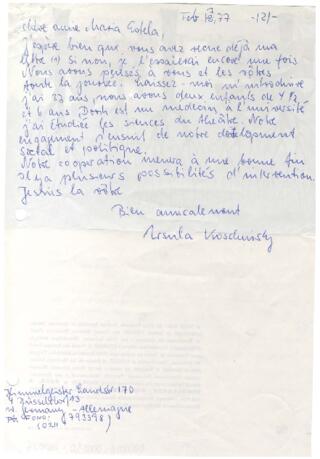 Feb 12, 77 -12/-
chère Anne Maria Estela,
J'espère bien que vous avez reçue déjà ma
lettre (1) Si non, je l'essaierai encore une fois
Nous avons pensés à vous et les vôtres
toute la journée. Laissez-moi m'introduire
j'ai 33 ans, nous avons deux enfants de 4 1/2
et 6 ans est un medecin à l'université
j'ai étudiée les sciences du théâtre. Notre
engagement s'ensuit de notre development
social et politique.
Notre cooperation menera à une bonne fin
il y a plusieurs possibilités d'intervention.
Je suis la vôtre
Bien amicalement
Ursula
Himmelgeister Landstr 170
4 Düsseldorf 13
W. Germany - Allemagne
FONO:
(0211) (793398)